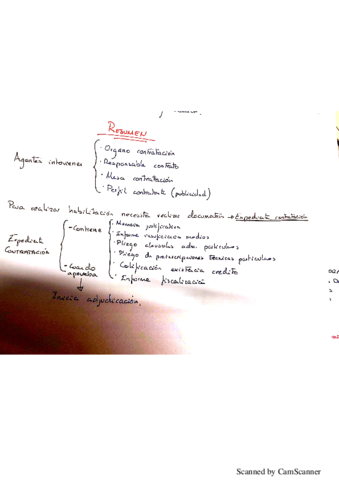 RESUMEN
Agentes intervienen
· Órgano contratación
· Responsable contrato
· Mesa contratación
· Perfil contratante (publicidad)
Para realizar habilitación necesita realizar documentos → Expediente contratación
Expediente Contratación
- Contiene
· Memoria justificativa
· Informe insuficiencia medios
· Pliego cláusulas adm. particulares
· Pliego de prescripciones técnicas particulares
· Certificación existencia credito
· Informe fiscalización
- Cuando aprueba
Inicia adjudicación.
Scanned by CamScanner